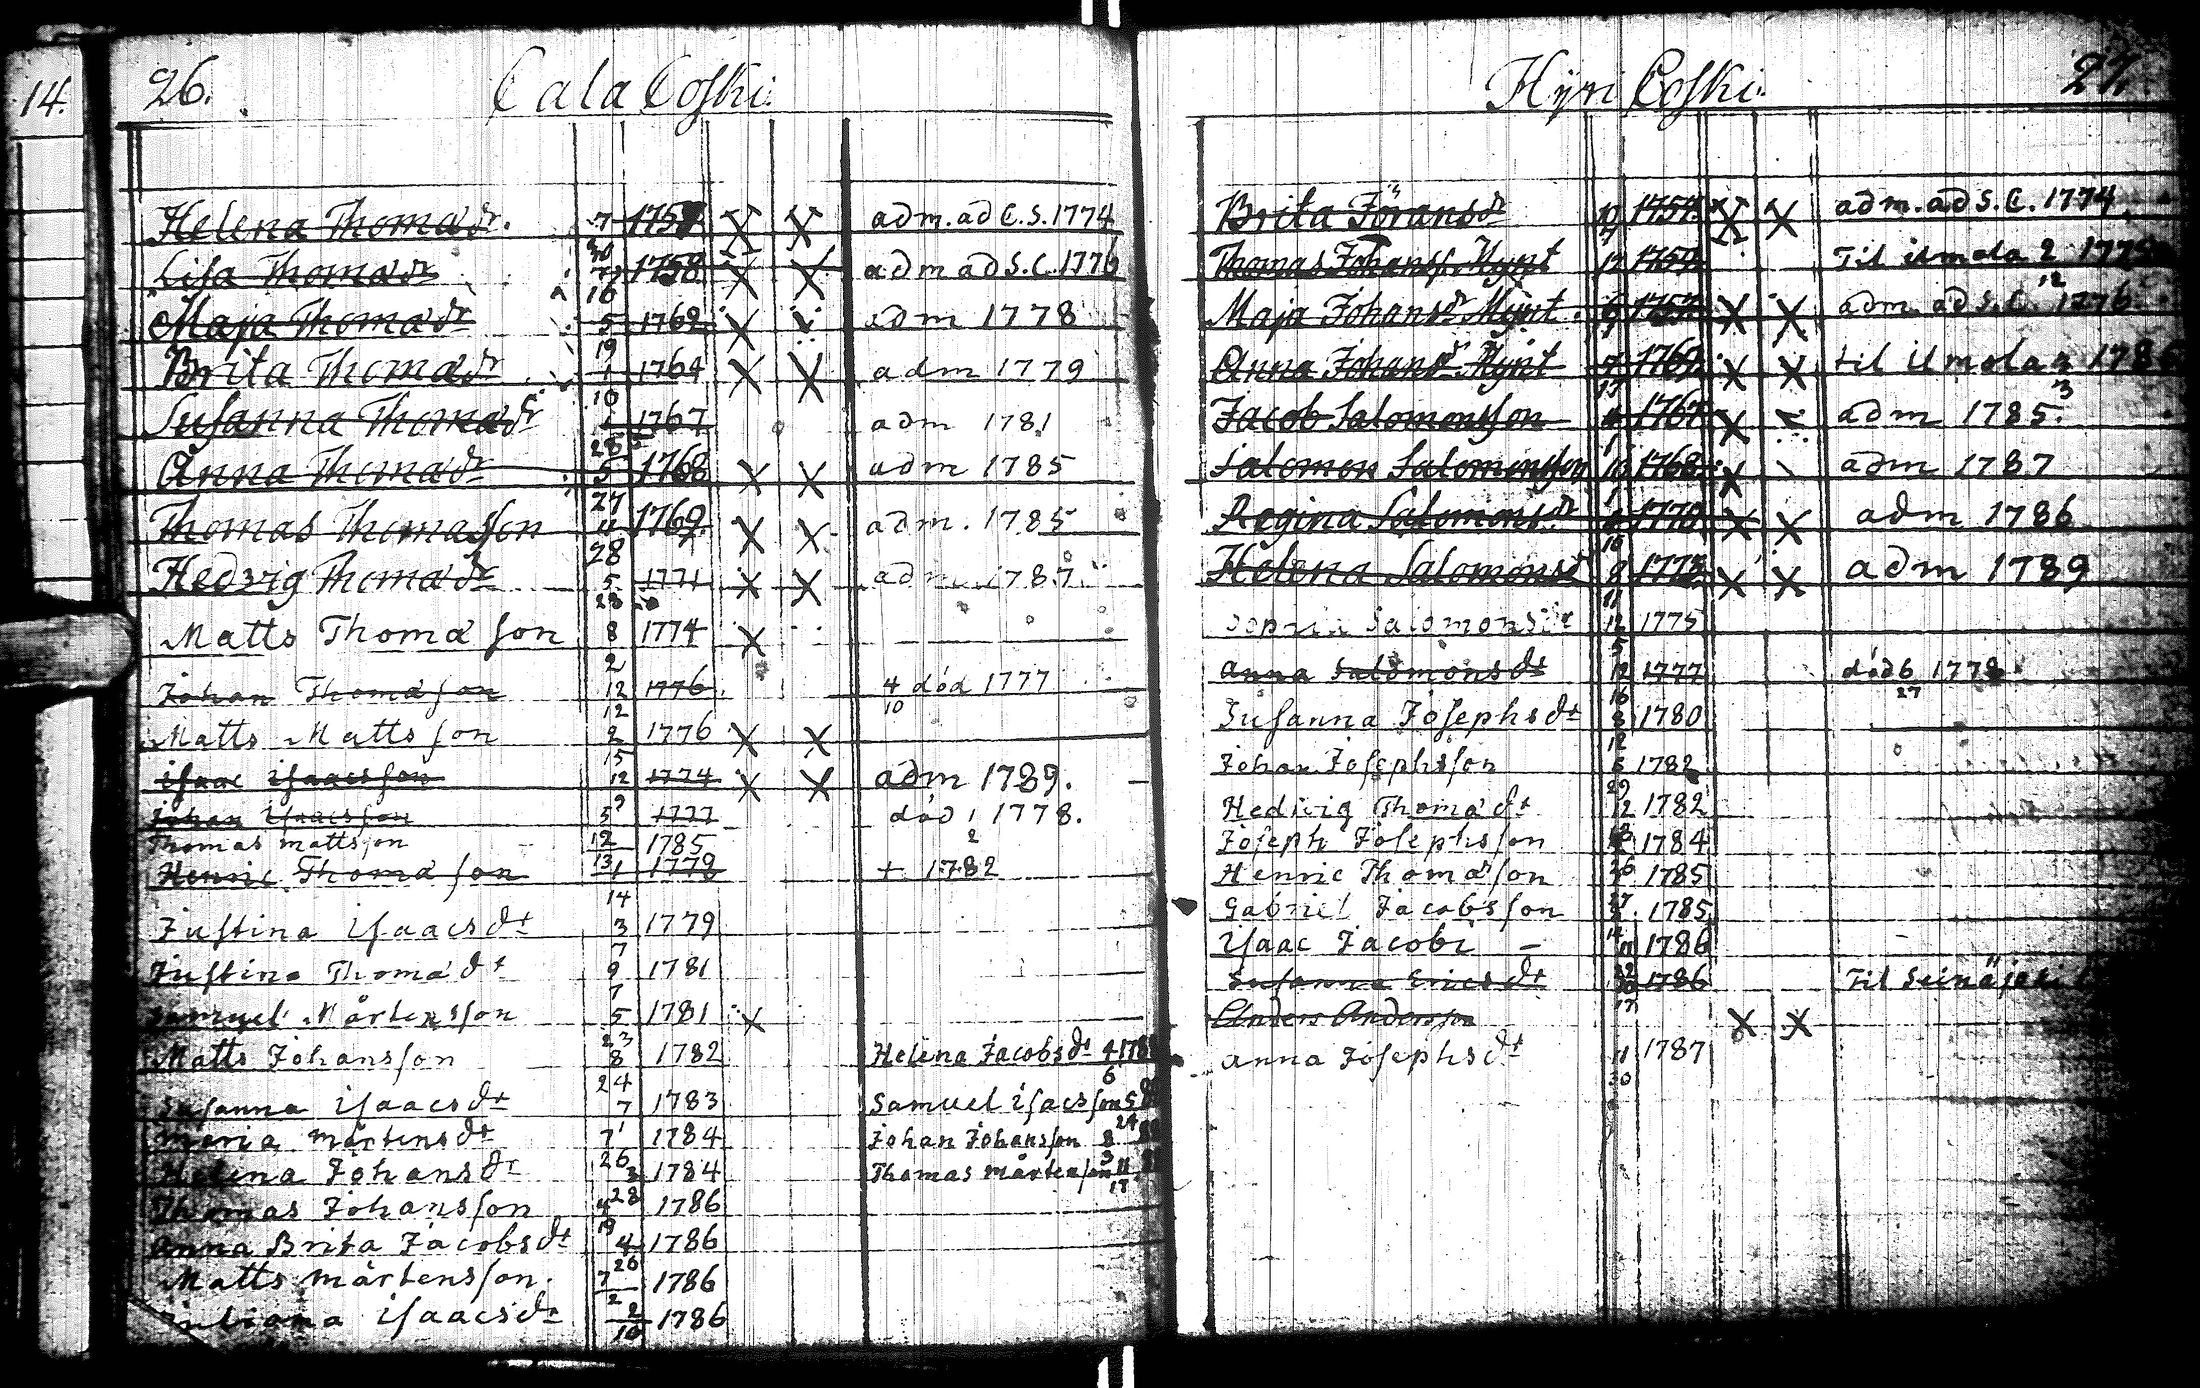 14.
26. Cala Coski.
Helena Thomadr. 7 1757 adm. ad C. S. 1774
30
Lisa Thomadr 7 1758 adm ad S. C. 1776
16
Maja Thomadr 5 1762 adm 1778
19
Brita Thomadr 1 1764 adm 1779
10
Susanna Thomadr 1 1767 adm 1781
28
Anna Thomadr 5 1768 adm 1785
27
Thomas Thomasson 4 1769 adm. 1785
28
Hedvig Thomadr 5 1771 adm 1787
23
Matts Thomason 8 1774
2
Johan Thomason 12 1776 4 död 1777
12 10
Matts Mattsson 2 1776
15
Isaac Isaacsson 12 1774 adm 1789.
Johan Isaacsson 5 1777 död 1 1778.
2
Thomas mattsson 12 1785
13
Henric Thomason 1 1779 + 1782
14
Justina Isaacsdr 3 1779
7
Justina Thomadr 9 1781
7
Samuel Mårtensson 5 1781
23
Matts Johansson 8 1782 Helena Jacobsdr 4
24 6
Susanna Isaacsdr 7 1783 Samuel Isacsson 5
1 24
Maria mårtensdr 7 1784 Johan Johansson 8
26 3
Helena Johansdr 3 1784 Thomas mårtensson 11
28 17
Thomas Johansson 4 1786
19
Anna Brita Jacobsdr 4 1786
26
Matts mårtensson. 7 1786
2
Juliana Isaacsdr 2 1786
10
27.
Hyri Coski.
Brita Joransdr 1757 adm. ad S. C. 1774
Thomas Johanss. Mynt 12 1759 Til ilmola 2
12
Maja Johansdr Mynt. 1757 adm. ad S. C. 1776
Anna Johansdr Mynt 7 1762 til ilmola
3
Jacob Salomonsson 1767 adm 1785.
Salomon Salomonsson 10 1768 adm 1787
Regina Salomonsdr 1770 adm 1786
10
Helena Salomonsdr 8 1773 adm 1789
11
Sophia Salomonsdr 12 1775
5
Anna Salomonsdr 12 1777 död 6 1778.
16 27
Susanna Josephsdr 8 1780
12
Johan Josephsson 1782
29
Hedwig Thomadr 2 1782
Joseph Josephsson 1784
26
Henric Thomasson 1785
27
Gabriel Jacobsson 1785
Isaac Jacobi 11 1786
22
Susanna Ericsdr 10 1786 Til Seinäjoki
17
Anders Andersson
Anna Josephsdr 11 1787
30